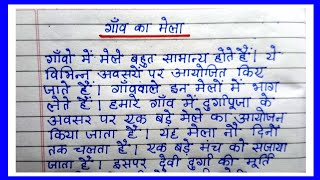 गाँव का मेला
गाँवो में मेले बहुत सामान्य होते हैं। ये
विभिन्न अवसरों पर आयोजित किए
जाते हैं। गाँववाले इन मेलों में भाग
लेते हैं। हमारे गाँव में दुर्गापूजा के
अवसर पर एक बड़े मेले का आयोजन
किया जाता हैं। यह मेला नौ दिनों
तक चलता हैं। एक बड़े मंच को सजाया
जाता हैं। इसपर देवी दुर्गा की मूर्ति